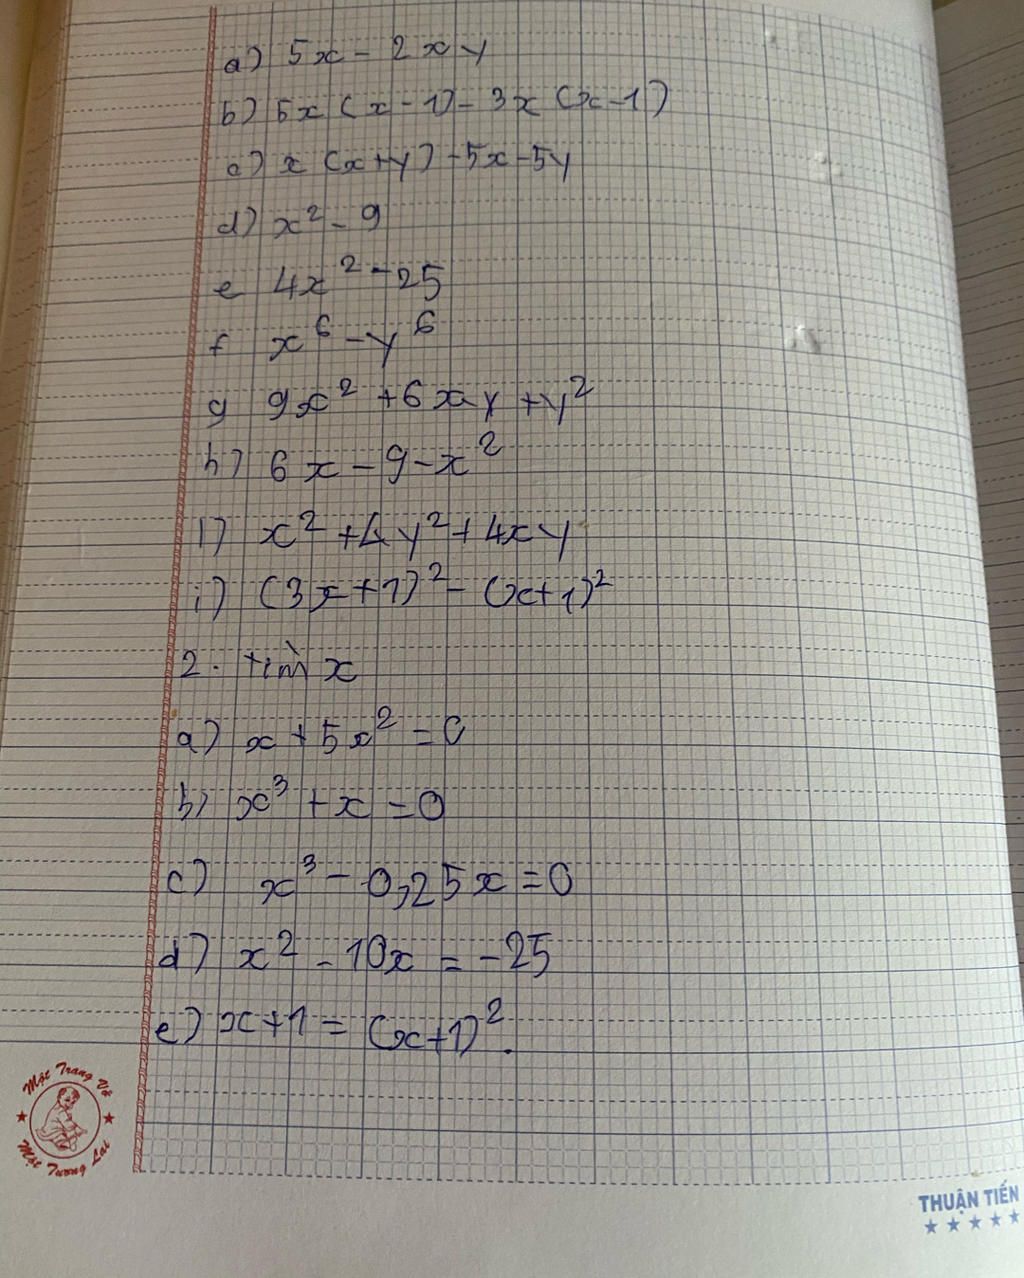 a) 5x - 2xy
b) 5x (x - 1) - 3x (x - 1)
c) x (x+y) - 5x - 5y
d) x² - 9
e 4x² - 25
f x⁶ - y⁶
g 9x² + 6xy + y²
h) 6x - 9 - x²
1) x² + 4y² + 4xy
i) (3x+1)² - (x+1)²
2. tìm x
a) x + 5x² = 0
b) x³ + x = 0
c) x³ - 0,25x = 0
d) x² - 10x = -25
e) x+1 = (x+1)².
Một Trang Vở
Một Tương Lai
THUẬN TIẾN